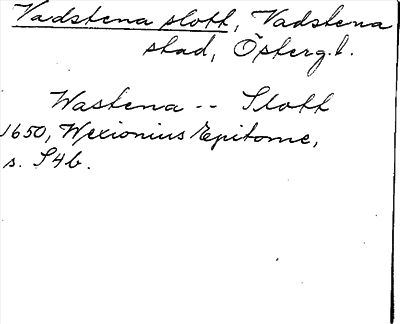 Vadstena slott, Vadstena
stad, Östergl.
Wastena -- Slott
1650, Wexionius Epitome,
s. S4b.